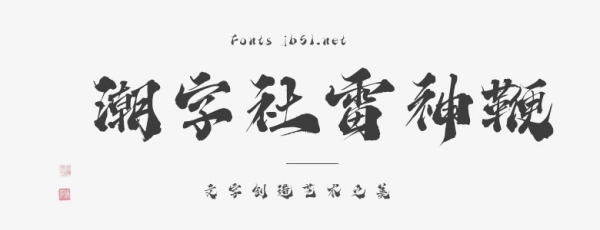 Fonts jb51.net
潮字社雷神鞭
文字创造艺术之美